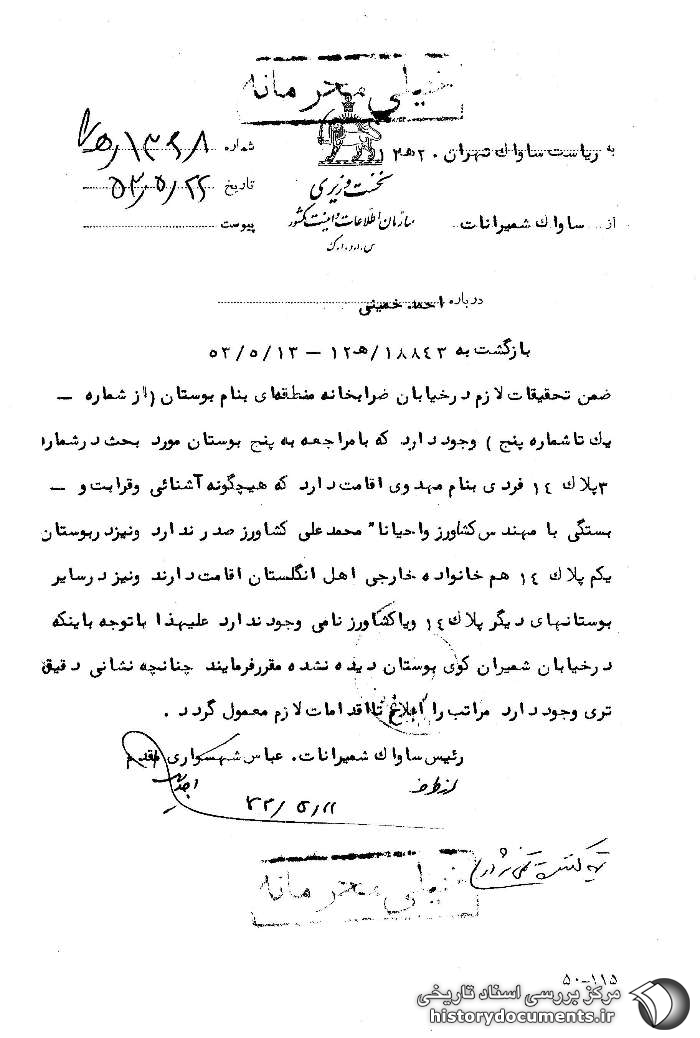 خیلی محرمانه
به ریاست ساواك تهران ۲۰ ه ۱۲
شماره
تاریخ ۵۳/۵/۲۲
نخست وزیری
از ساواك شمیرانات
سازمان اطلاعات و امنیت کشور
پیوست
س.ا.و.ا.ک
درباره احمد خمینی
بازگشت به ۱۸۸٤۳ /ه۱۲ – ۵۳/۵/۱۳
ضمن تحقیقات لازم درخیابان ضرابخانه منطقه‌ای بنام بوستان (از شماره –
یك تا شماره پنج ) وجود دارد که با مراجعه به پنج بوستان مورد بحث درشماره
۳پلاك ۱٤ فردی بنام مهدوی اقامت دارد که هیچگونه آشنائی وقرابت و –
بستگی با مهندس کشاورز واحیانا" محمدعلی کشاورز صدر ندارد ونیزدربوستان
یکم پلاك ۱٤ هم خانواده خارجی اهل انگلستان اقامت دارند ونیز درسایر
بوستانهای دیگر پلاك ۱٤ ویاکشاورز نامی وجود ندارد علیهذا باتوجه باینکه
درخیابان شمیران کوی بوستان دیده نشده مقررفرمایند چنانچه نشانی دقیق
تری وجود دارد مراتب را ابلاغ تااقدامات لازم معمول گردد .
رئیس ساواك شمیرانات. عباس شهسواری مقدم
از طرف
خیلی محرمانه
۵۰-۱۱۵
مرکز بررسی اسناد تاریخی
historydocuments.ir